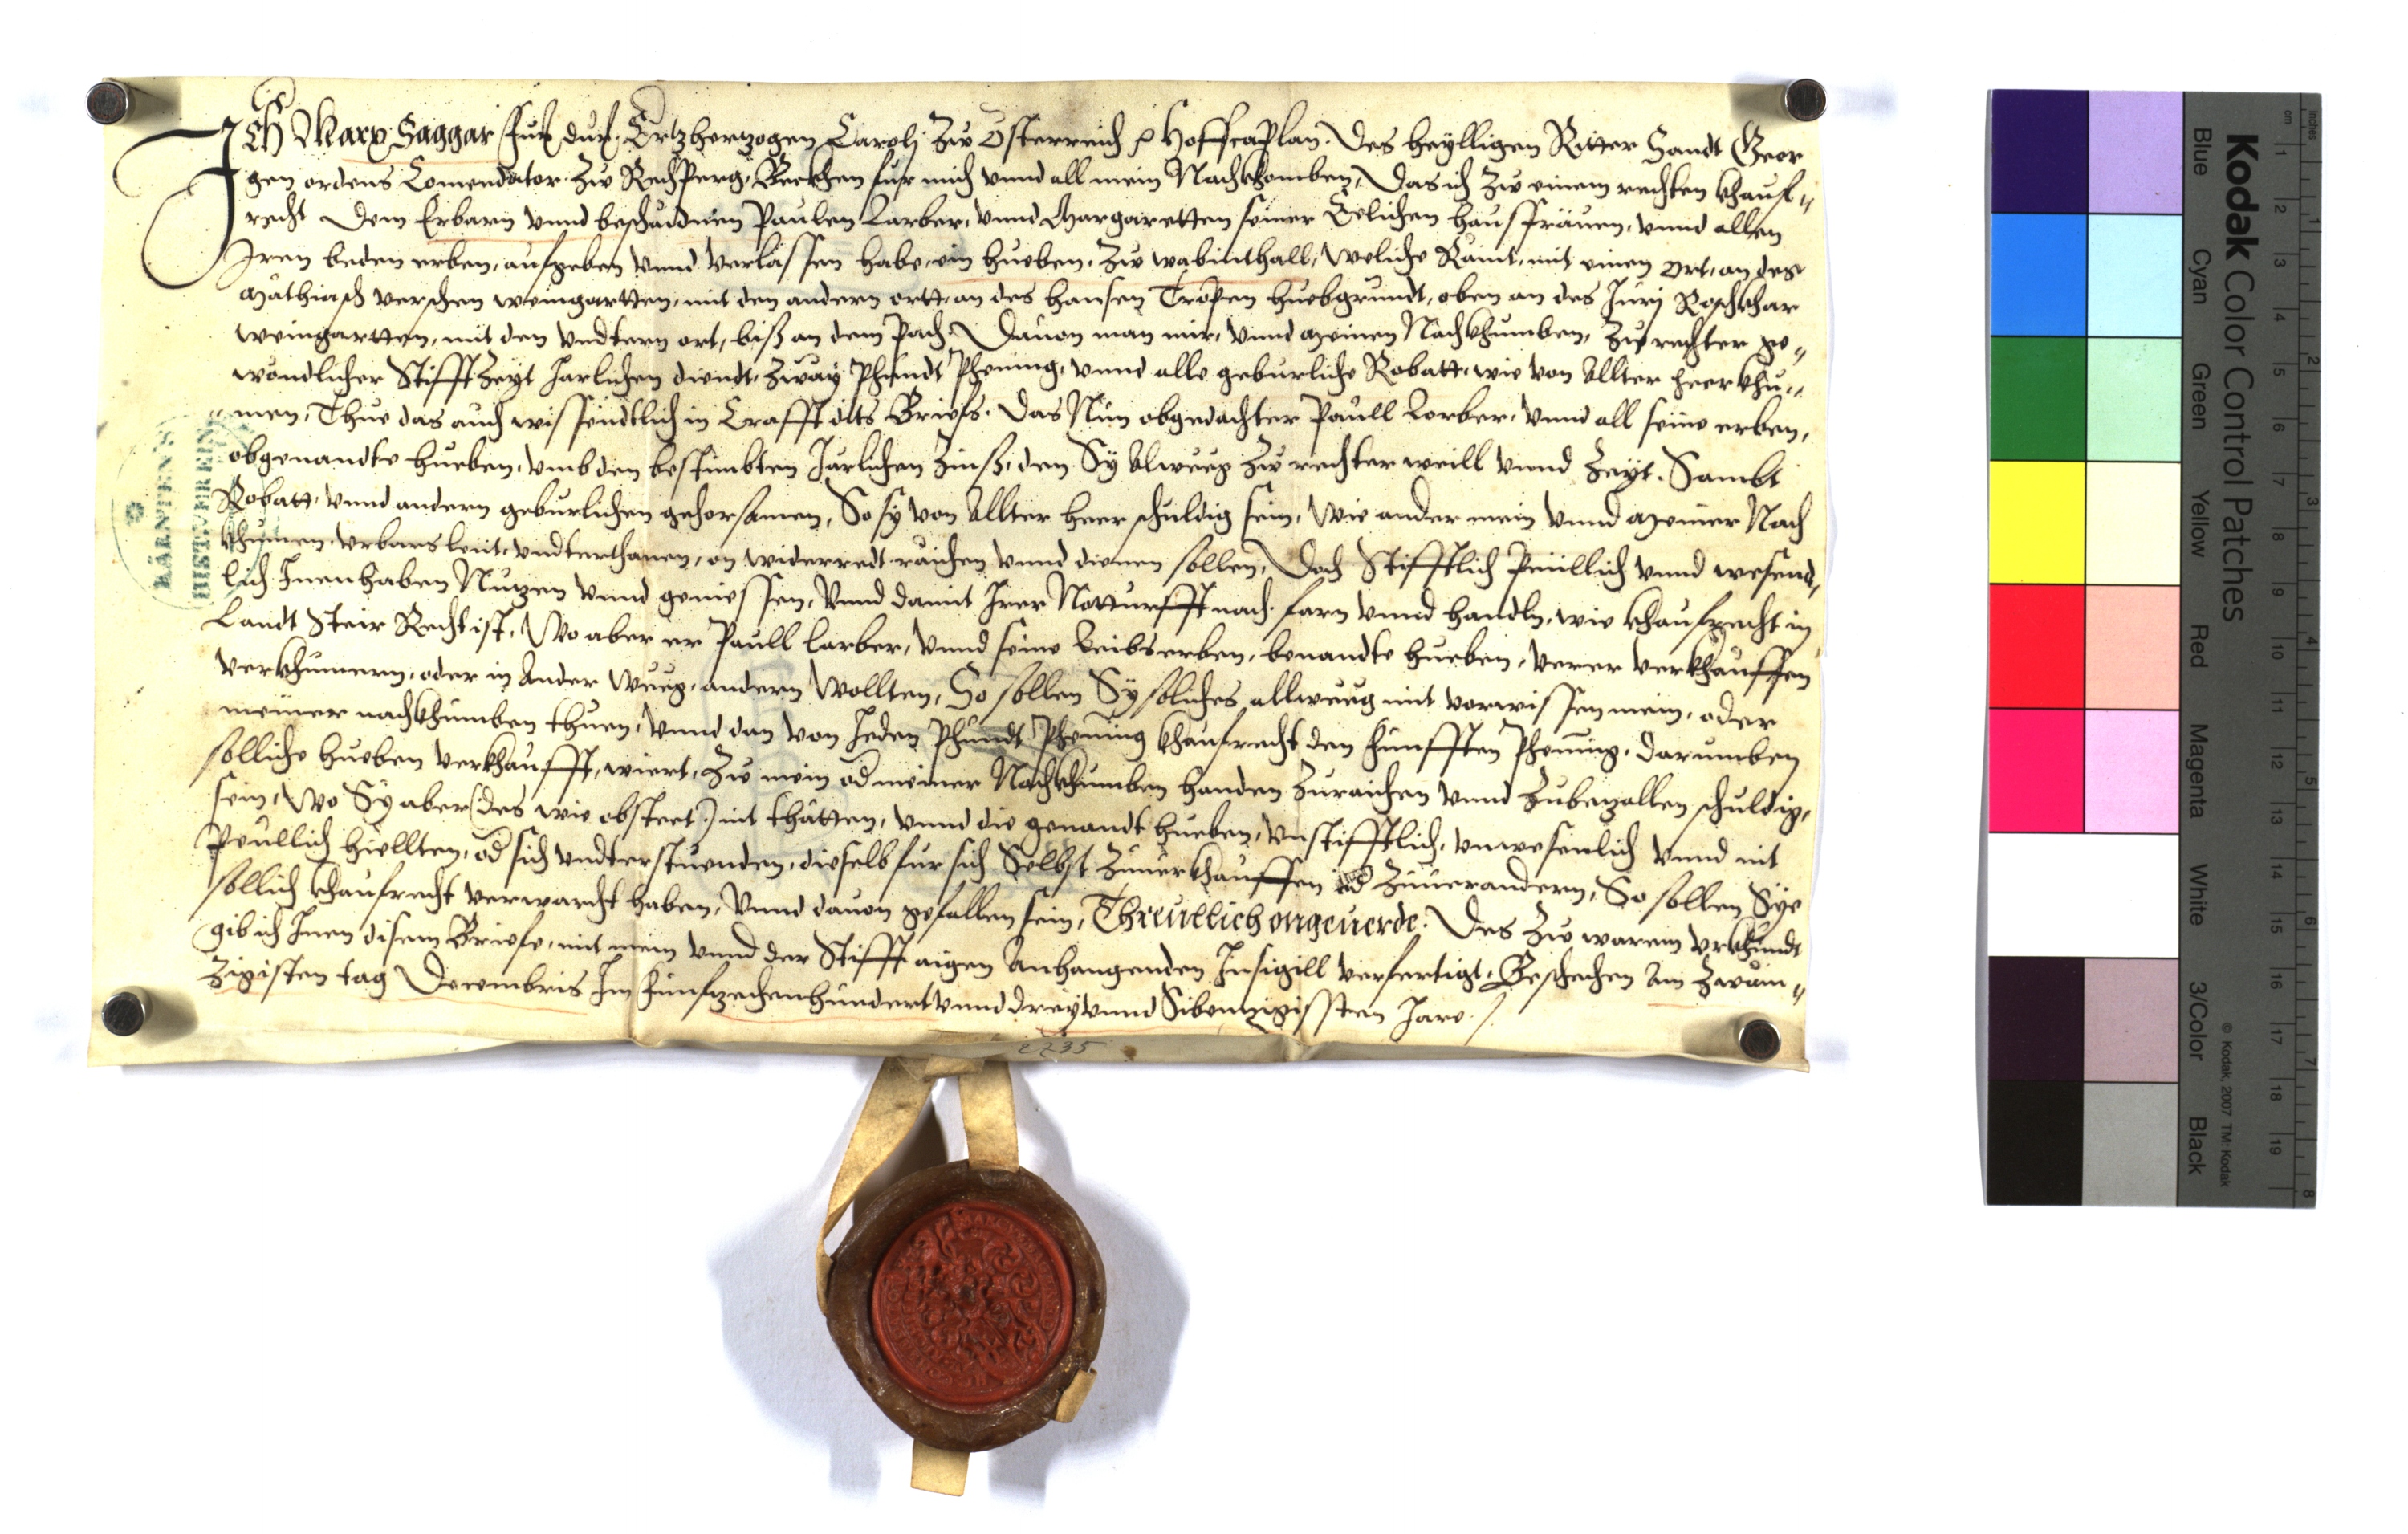 Ich Marx Saggar Fur: dur: Ertzherzogen Carolj Zw Osterreich [et]c Hoffcaplan. des heylligen Ritter Sandt Geor
gen ordens Comendator Zw Rechperg, Bekhen fur mich vnnd all mein Nachkhomben, Das ich Zw einem rechten khauf„
recht dem Erbarn vnnd beschaidnen Paulen Larber, vnnd Margaretten seiner Eelichen hausfrauen, vnnd allen
Iren beden erben, aufgeben vnnd verlassen habe, ein hueben, Zw wabinthall, weliche Raint, mit einen ort, an des
Mathiasch verschen weingartten, mit den andern ortt, an des hansen Tropen huebgrundt, oben an des Jurj Roschkhar
weingartten, mit den vndtern ort, biß an dem Pach. Dauon man mir, vnnd Meinen Nachkhumben, Zu rechter ge„
wondlicher Stifft Zeyt Jarlichen diendt, Zway Phundt Phening, vnnd alle geburliche Robatt, wie von Allter heerkhu„
men, Thue das auch wissendtlich in Crafft dits Briefs. Das Nun obgedachter Paull Lorber, vnnd all seine erben,
obgenandte hueben, vmb den bestimbten Jarlichen Zinß, den Sy Alweeg Zw rechter weill vnnd Zeyt. Sambt
Robatt, vnnd andern geburlichen gehorsamen, So sy von Allter heer schuldig sein, Wie ander mein vnnd Meiner Nach
khumen, vrbarsleut, vndterthanen, on widerredt raichen vnnd dienen sollen, Doch Stifftlich Peullich vnnd wesend„
lich Innenhaben Nutzen vnnd geniessen, Vnnd damit Irer Notturfft nach farn vnnd handln, wie khaufrecht in
Landt Steir Recht ist, Wo aber er Paull larber, vnnd seine Leibserben, benandte hueben, verer verkhauffen
verkhumern, oder in Ander Weeg, andern Wollten, So sollen Sy soliches allweeg mit vorwissen mein, oder
meiner nachkhumben thuen, vnnd dan von Jeden Phundt Phening khaufrecht den funfften Phening, darumben
solliche hueben verkhaufft, wiert, Zw mein od meiner Nachkhumben handen Zuraichen vnnd Zubezallen schuldig,
sein, Wo Sy aber (des wie obsteet) nit thätten, vnnd die genandt hueben, vnstifftlich, vnwesenlich vnnd nit
Peullich hiellten, od sich vndterstuenden, dieselb fur sich Selbst Zuuerkhauffen od Zuuerandern, So sollen Sye
sollich khaufrecht verwarcht haben, Vnnd dauon gefallen sein, Threullich ongeuerde. Des Zw warem vrkhundt
gib ich Inen disem Briefe, mit mein vnnd der Stifft aigen Anhangenden Insigill verfertigt, Beschechen Am Zwain„
Zigisten tag Decembris Im Funfzechenhundert vnnd drey vnnd Sibenzigissten Jare.
2735
KÄRNTEN'S
HIST. VEREIN
Kodak Color Control Patches
Blue Cyan Green Yellow Red Magenta White 3/Color Black
© Kodak, 2007 TM: Kodak
cm 1 2 4 5 6 7 8 9 10 11 12 13 14 15 16 17 18 19
inches 1 2 3 4 5 6 7 8